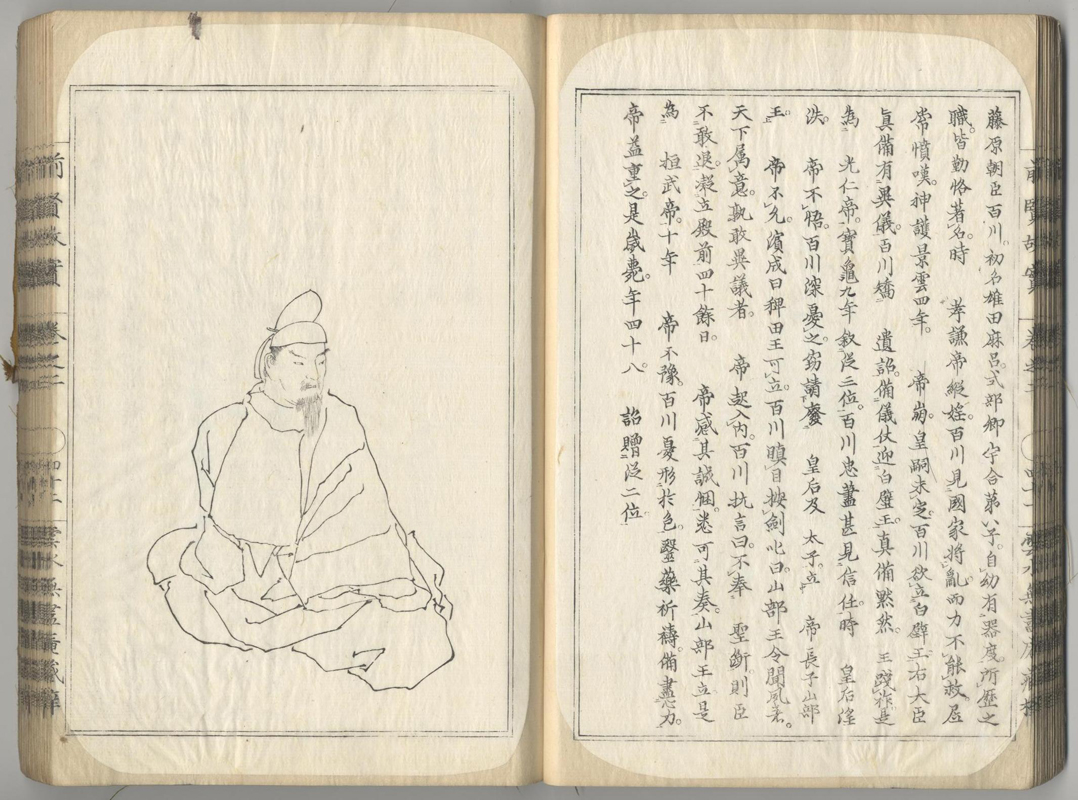 藤原朝臣百川。初名雄田麻呂。式部卿宇合第八子。自幼有器度。所歴之
職。皆勤恪著名。時　孝謙帝縦婬。百川見國家將亂。而力不能救。居
常憤嘆。神護景雲四年。　帝崩。皇嗣未定。百川欲立白壁王。右大臣
眞備有異儀。百川矯　遺詔。備儀仗迎白壁王。真備黙然。王踐祚。是
為　光仁帝。寶龜九年叙從三位。百川忠藎甚見信任。時　皇后淫
泆。　帝不悟。百川深憂之。窃請廢　皇后及　太子。立　帝長子山部
王。　帝不允。濱成曰稗田王可立。百川瞋目按劍叱曰。山部王令聞夙著。
天下属意。孰敢異議者。　帝起入内。百川抗言曰。不奉　聖斷。則臣
不敢退。凝立殿前四十餘日。　帝感其誠悃。遂可其奏。山部王立。是
為　桓武帝。十年　帝不豫。百川憂形於色。醫藥祈禱。備盡心力。
帝益重之。是歳薨。年四十八　詔贈從二位
前賢故實　卷之三